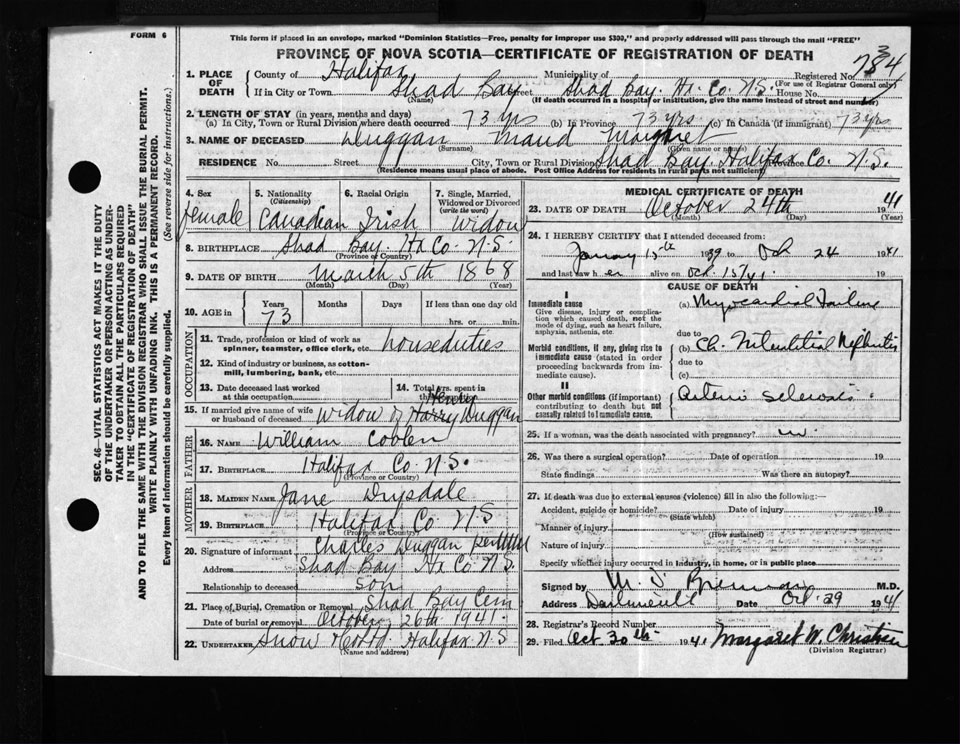 FORM 6
This form if placed in an envelope, marked "Dominion Statistics—Free, penalty for improper use $300," and properly addressed will pass through the mail "FREE"
PROVINCE OF NOVA SCOTIA—CERTIFICATE OF REGISTRATION OF DEATH
SEC. 46—VITAL STATISTICS ACT MAKES IT THE DUTY
OF THE UNDERTAKER OR PERSON ACTING AS UNDER-
TAKER TO OBTAIN ALL THE PARTICULARS REQUIRED
IN THE "CERTIFICATE OF REGISTRATION OF DEATH"
AND TO FILE THE SAME WITH THE DIVISION REGISTRAR WHO SHALL ISSUE THE BURIAL PERMIT.
WRITE PLAINLY WITH UNFADING INK. THIS IS A PERMANENT RECORD.
Every item of information should be carefully supplied. (See reverse side for instructions.)
1. PLACE OF DEATH County of Halifax Municipality of Registered No. 734
(For use of Registrar General only)
If in City or Town Shad Bay Street Shad Bay. Hx. Co. N.S. House No.
(Name) (If death occurred in a hospital or institution, give the name instead of street and number)
2. LENGTH OF STAY (in years, months and days)
(a) In City, Town or Rural Division where death occurred 73 yrs (b) In Province 73 yrs (c) In Canada (if immigrant) 73 yrs
3. NAME OF DECEASED Duggan Maud Margaret
(Surname) (Given name or names)
RESIDENCE No. Street City, Town or Rural Division Shad Bay Halifax Co. N.S.
(Residence means usual place of abode. Post Office Address for residents in rural parts not sufficient) Province
4. Sex Female
5. Nationality (Citizenship) Canadian
6. Racial Origin Irish
7. Single, Married, Widowed or Divorced (write the word) Widow
8. BIRTHPLACE Shad Bay. Hx Co. N.S.
(Province or Country)
9. DATE OF BIRTH March 5th 1868
(Month) (Day) (Year)
10. AGE in Years 73 Months Days If less than one day old hrs. or min.
OCCUPATION
11. Trade, profession or kind of work as spinner, teamster, office clerk, etc. houseduties
12. Kind of industry or business, as cotton-mill, lumbering, bank, etc.
13. Date deceased last worked at this occupation
14. Total yrs. spent in
15. If married give name of wife or husband of deceased widow of Harry Duggan
FATHER
16. NAME William Coolen
17. BIRTHPLACE Halifax Co. N.S.
(Province or Country)
MOTHER
18. MAIDEN NAME Jane Drysdale
19. BIRTHPLACE Halifax Co N.S
(Province or Country)
20. Signature of informant Charles Duggan
Address Shad Bay Hx Co N.S.
Relationship to deceased Son
21. Place of Burial, Cremation or Removal Shad Bay Cem
Date of burial or removal October 26th 1941.
22. UNDERTAKER Snow & Co Ltd Halifax N.S
(Name and address)
MEDICAL CERTIFICATE OF DEATH
23. DATE OF DEATH October 24th 1941
(Month) (Day) (Year)
24. I HEREBY CERTIFY that I attended deceased from:
1939 to Oct 24 1941
and last saw her alive on Oct. 15/41. 19
CAUSE OF DEATH
I
Immediate cause (a) Myocardial Failure
Give disease, injury or complication which caused death, not the mode of dying, such as heart failure, asphyxia, asthenia, etc. due to
Morbid conditions, if any, giving rise to immediate cause (stated in order proceeding backwards from immediate cause). (b) Ch. Interstitial Nephritis
due to
(c)
II
Other morbid conditions (if important) contributing to death but not causally related to immediate cause. Arterio Sclerosis
25. If a woman, was the death associated with pregnancy?
26. Was there a surgical operation? Date of operation 19
State findings Was there an autopsy?
27. If death was due to external causes (violence) fill in also the following:—
Accident, suicide or homicide? Date of injury 19
(State which)
Manner of injury
(How sustained)
Nature of injury
Specify whether injury occurred in industry, in home, or in public place
Signed by M. J. Brennan M.D.
Address Date Oct. 29 1941
28. Registrar's Record Number
29. Filed Oct 30th 1941 Margaret W. Christian
(Division Registrar)